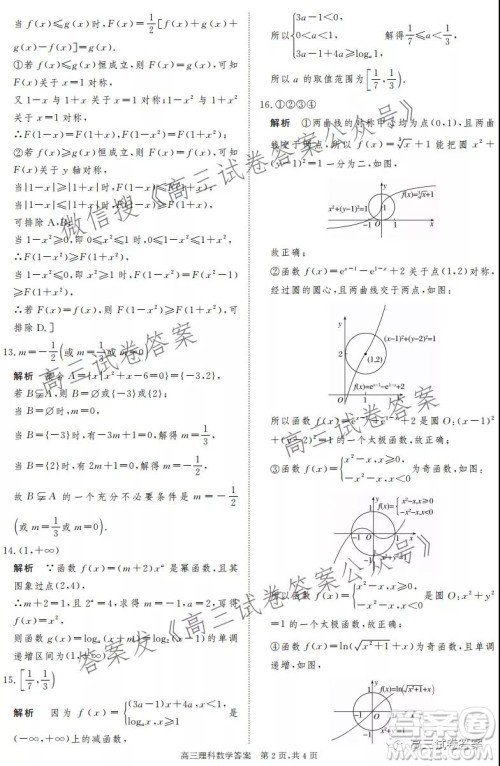 当 f(x)≤g(x)时,F(x)=1/2[f(x)+g(x)+
f(x)-g(x)]=g(x).
①若 f(x)≤g(x)恒成立,则 F(x)=g(x),可知
F(x)关于 x=1 对称,
又 1-x 与 1+x 关于 x=1 对称,
∴F(1-x)=F(1+x),
②若 f(x)≥g(x)恒成立,则 F(x)=f(x),可知
F(x)关于 y 轴对称,
当|1-x|≥|1+x|时,F(1-x)≥F(1+x),
可排除 A,B;
当 1-x²≥0,即 0≤x²≤1 时,
∴F(1-x²)≥F(1+x²),
当 1-x²≤0,即 x²≥1 时,F(1-x²)≥
F(1+x²),
∴若 F(x)=f(x),F(1-x²)≥F(1+x²),可
排除 D.]
13.m=-1/2(或 m=1/3 或 m=0)
解析 A={x|x²+x-6=0}={-3,2},
若B⫋A,则B=∅或B={-3}或{2};
当 B=∅时,m=0;
当 B={-3}时,有-3m+1=0,解得 m=1/3,
当 B={2}时,有 2m+1=0,解得 m=-1/2.
故 B⫋A 的一个充分不必要条件是 m=-1/2
(或 m=1/3 或 m=0).
14.(1,+∞)
解析 ∵函数 f(x)=(m+2)xᵃ 是幂函数,且其
图象过点(2,4),
∴m+2=1,且 2ᵃ=4,求得 m=-1,a=2,可得
f(x)=x²,
则函数 g(x)=logₐ(x+m)=log₂(x-1)的单调
递增区间为(1,+∞).
15.[1/7,1/3)
解析 因为 f(x)={(3a-1)x+4a,x<1,
logₐx,x≥1
是
(-∞,+∞)上的减函数,
所以{3a-1<0,
0<a<1,
3a-1+4a≥logₐ1,
解得1/7≤a<1/3,
所以 a 的取值范围为[1/7,1/3).
16.①②③④
解析 ①两曲线的对称中心均为点(0,1),且两曲
线交于两点,所以 f(x)=∛x+1 能把圆 x²+
(y-1)²=1 一分为二,如图,
f(x)=∛x+1
x²+(y-1)²=1
故正确;
②函数 f(x)=eˣ⁻¹-e¹⁻ˣ+2 关于点(1,2)对称,
经过圆的圆心,且两曲线交于两点,如图,
(x-1)²+(y-2)²=1
(1,2)
所以函数 f(x)=eˣ⁻¹-e¹⁻ˣ+2 是圆 O:(x-1)²
+(y-2)²=1 的一个太极函数,故正确;
③函数 f(x)={x²-x,x≥0,
-x²-x,x<0
为奇函数,如图,
所以函数 f(x)={x²-x,x≥0,
-x²-x,x<0
是圆 O:x²+y²
=1 的一个太极函数,故正确;
④函数 f(x)=ln(√(x²+1)+x)为奇函数,且单调
递增,如图,
f(x)=ln(√(x²+1)+x)
高三理科数学答案 第 2 页,共 4 页
微信搜《高三试卷答案公众号》
高三试卷答案
高三试卷答案
答案发《高三试卷答案公众号》
高三试卷答案